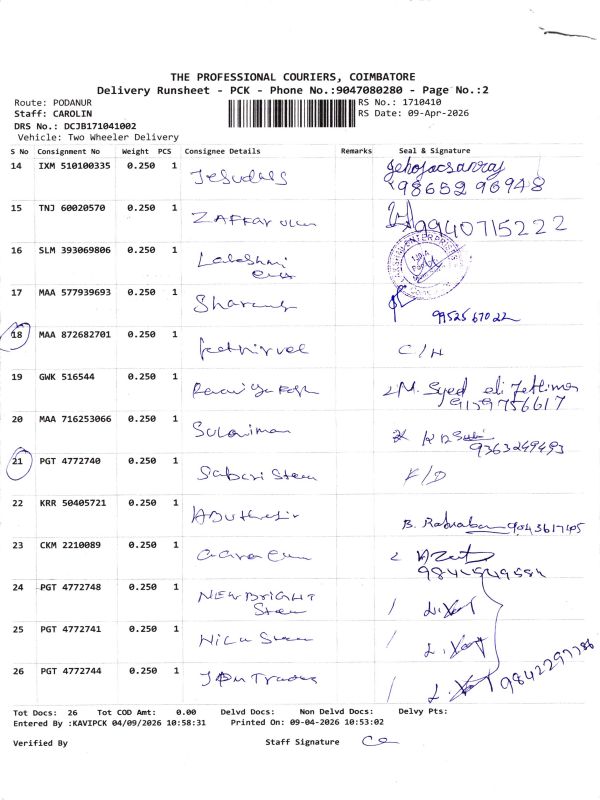 THE PROFESSIONAL COURIERS, COIMBATORE
Delivery Runsheet - PCK - Phone No.:9047080280 - Page No.:2
Route: PODANUR
RS No.: 1710410
Staff: CAROLIN
RS Date: 09-Apr-2026
DRS No.: DCJB171041002
Vehicle: Two Wheeler Delivery
S No Consignment No Weight PCS Consignee Details Remarks Seal & Signature
14 IXM 510100335 0.250 1 Jesudass
98652 96948
15 TNJ 60020570 0.250 1 ZAFFAR
9940715222
16 SLM 393069806 0.250 1 Lakshmi
17 MAA 577939693 0.250 1
9952567022
18 MAA 872682701 0.250 1 Kathirvel C/H
19 GWK 516544 0.250 1 M. Syed ali
9159756617
20 MAA 716253066 0.250 1 Sulaiman
9363249493
21 PGT 4772740 0.250 1 Sabari Steel F/D
22 KRR 50405721 0.250 1 B.
23 CKM 2210089 0.250 1
24 PGT 4772748 0.250 1 NEW BRIGHT
Steel
25 PGT 4772741 0.250 1 Steel
26 PGT 4772744 0.250 1 Traders
Tot Docs: 26 Tot COD Amt: 0.00 Delvd Docs: Non Delvd Docs: Delvy Pts:
Entered By :KAVIPCK 04/09/2026 10:58:31 Printed On: 09-04-2026 10:53:02
Verified By Staff Signature